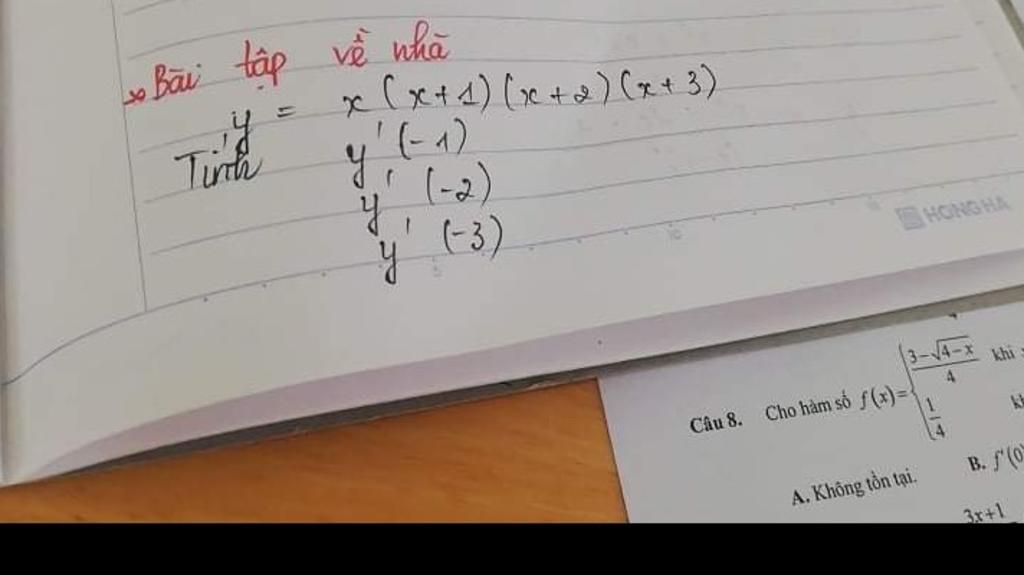 Bài tập về nhà
y = x (x+1) (x+2) (x+3)
Tính y' (-1)
y' (-2)
y' (-3)
HONG HA
10
5
Câu 8. Cho hàm số f(x)= { 3-√4-x / 4 khi
1/4 kh
A. Không tồn tại. B. f'(0
3x+1